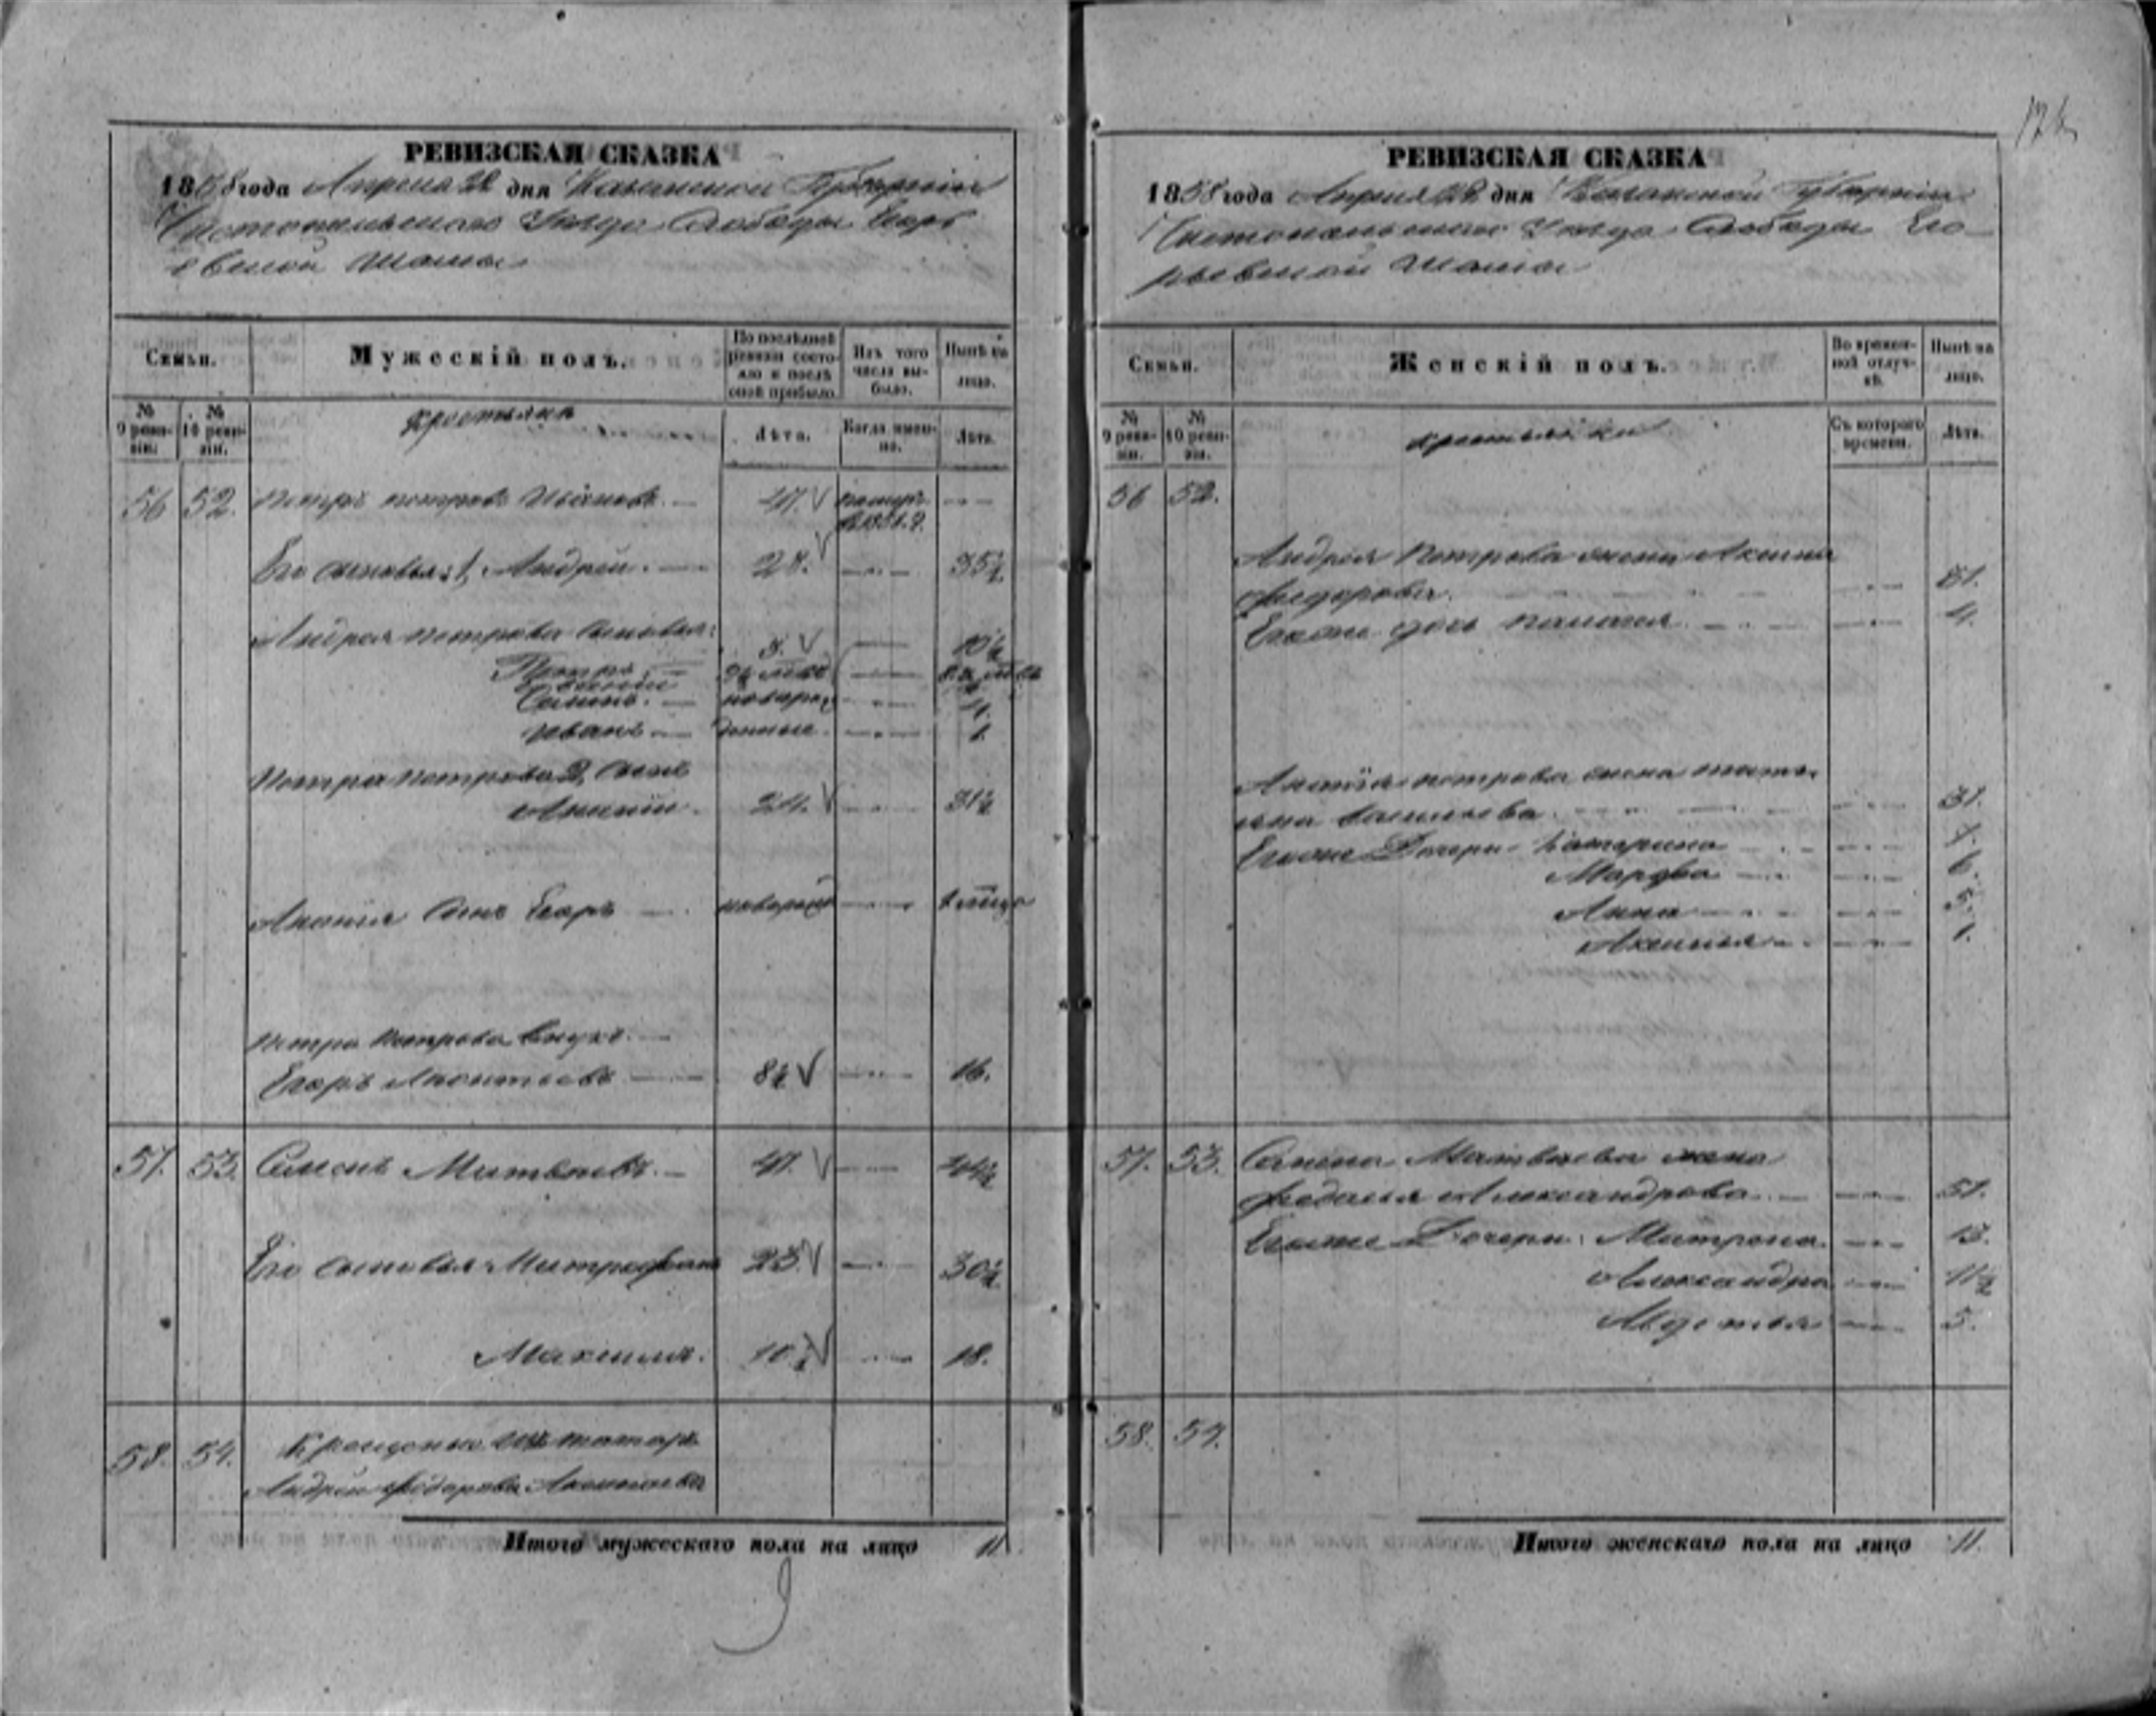 126
РЕВИЗСКАЯ СКАЗКА
1858 года Апреля 22 дня Казанской Губернiи
Чистопольскаго Уѣзда Слободы Егорь
евской
Семьи.
Мужескiй полъ.
По послѣдней ревизiи состояло и послѣ оной прибыло.
Изъ того числа выбыло.
Нынѣ на лицо.
№ 9 ревизiи.
№ 10 ревизiи.
крестьяне
Лѣта.
Когда именно.
Лѣта.
56 52. Петръ Петровъ 47.
Его сыновья: 1, Андрей. 28. 35½
Андрея Петрова сыновья:
Петръ
Семенъ. новорож 4.
Иванъ денные 1.
Петра Петрова 2, сынъ
Ананiй. 24. 31½
Ананiя сынъ Егоръ новорож
Петра Петрова внукъ.
Егоръ Леонтьевъ 8½ 16.
57. 53. Семенъ Матвѣевъ.
Его сыновья: Митрофанъ 23. 30½
Максимъ. 10½ 18.
58. 54.
Андрей Федорова
Итого мужескаго пола на лицо 11.
РЕВИЗСКАЯ СКАЗКА
1858 года Апреля 22 дня Казанской Губернiи
Чистопольскаго Уѣзда Слободы Его
рьевской
Семьи.
Женскiй полъ.
Во временной отлучкѣ.
Нынѣ на лицо.
№ 9 ревизiи.
№ 10 ревизiи.
крестьянки
Съ котораго времени.
Лѣта.
56 52.
Андрея Петрова жена Аксинья
Федорова. 31.
Егоже дочь Пелагея 4.
Ананiя Петрова жена Татья
на Васильева 31.
Егоже Дочери: Катерина 7.
Марфа 6.
Анна 5.
Аксинья 1.
57. 53. Семена Матвѣева жена
Федосья Александрова 51.
Егоже Дочери: Матрона 13.
Александра 11½
Авдотья 5.
58. 54.
Итого женскаго пола на лицо 11.